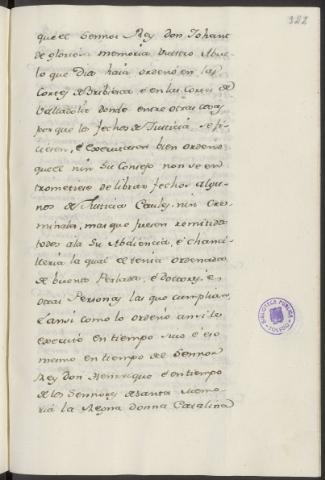 322
que el Sennor Rey don Johan
de gloriosa memoria vuestro Abue
lo que Dios haia ordenó en las
Cortes de Bribiesca é en las Cortes de
Valladolid donde entre otras cosas
por que los fechos de Justicia se fi
ciesen, é executasen bien ordenó
que el nin su Consejo non se en
trometiese de librar fechos algu
nos de Justicia Ceviles nin Cri
minales, mas que fuesen remitidos
todos á la su Abdiencia, é Chanci
lleria la qual el tenia ordenada
de buenos Perlados, é Doctores, é
otras Personas las que cumplian,
é ansi como lo ordenó ansi lo
executó en tiempo suo é eso
mismo en tiempo del Sennor
Rey don Henrrique é en tiempo
de los Sennores de Santa memo
ria la Reyna donna Catalina
BIBLIOTECA PUBLICA
TOLEDO